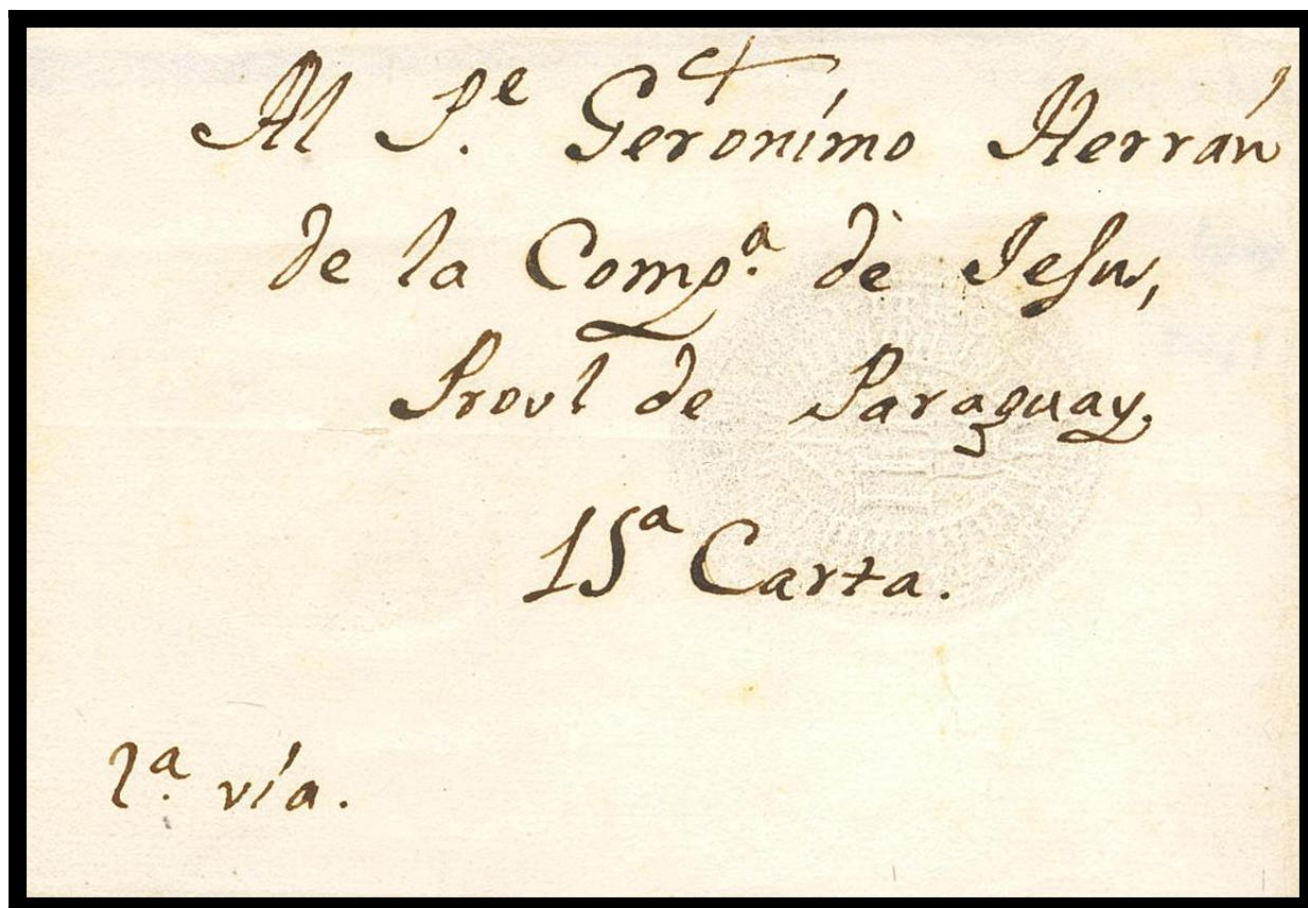 Al P.e Geronímo Herrán
de la Comp.a de Jesus,
Provl de Paraguay.
15a Carta.
1.a vía.